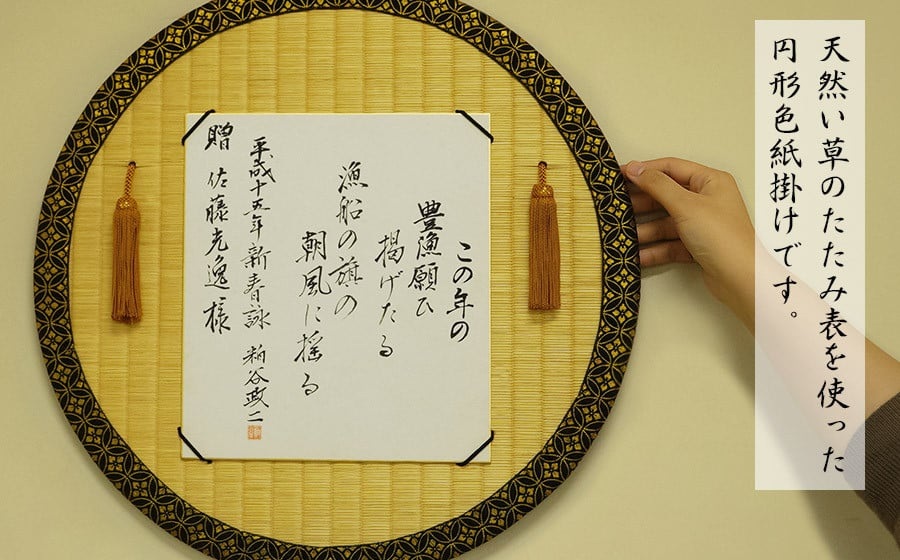 天然い草のたたみ表を使った
円形色紙掛けです。
この年の
豊漁願ひ
掲げたる
漁船の旗の
朝風に揺る
平成十五年 新春詠 粕谷政二
贈 佐藤光逸様